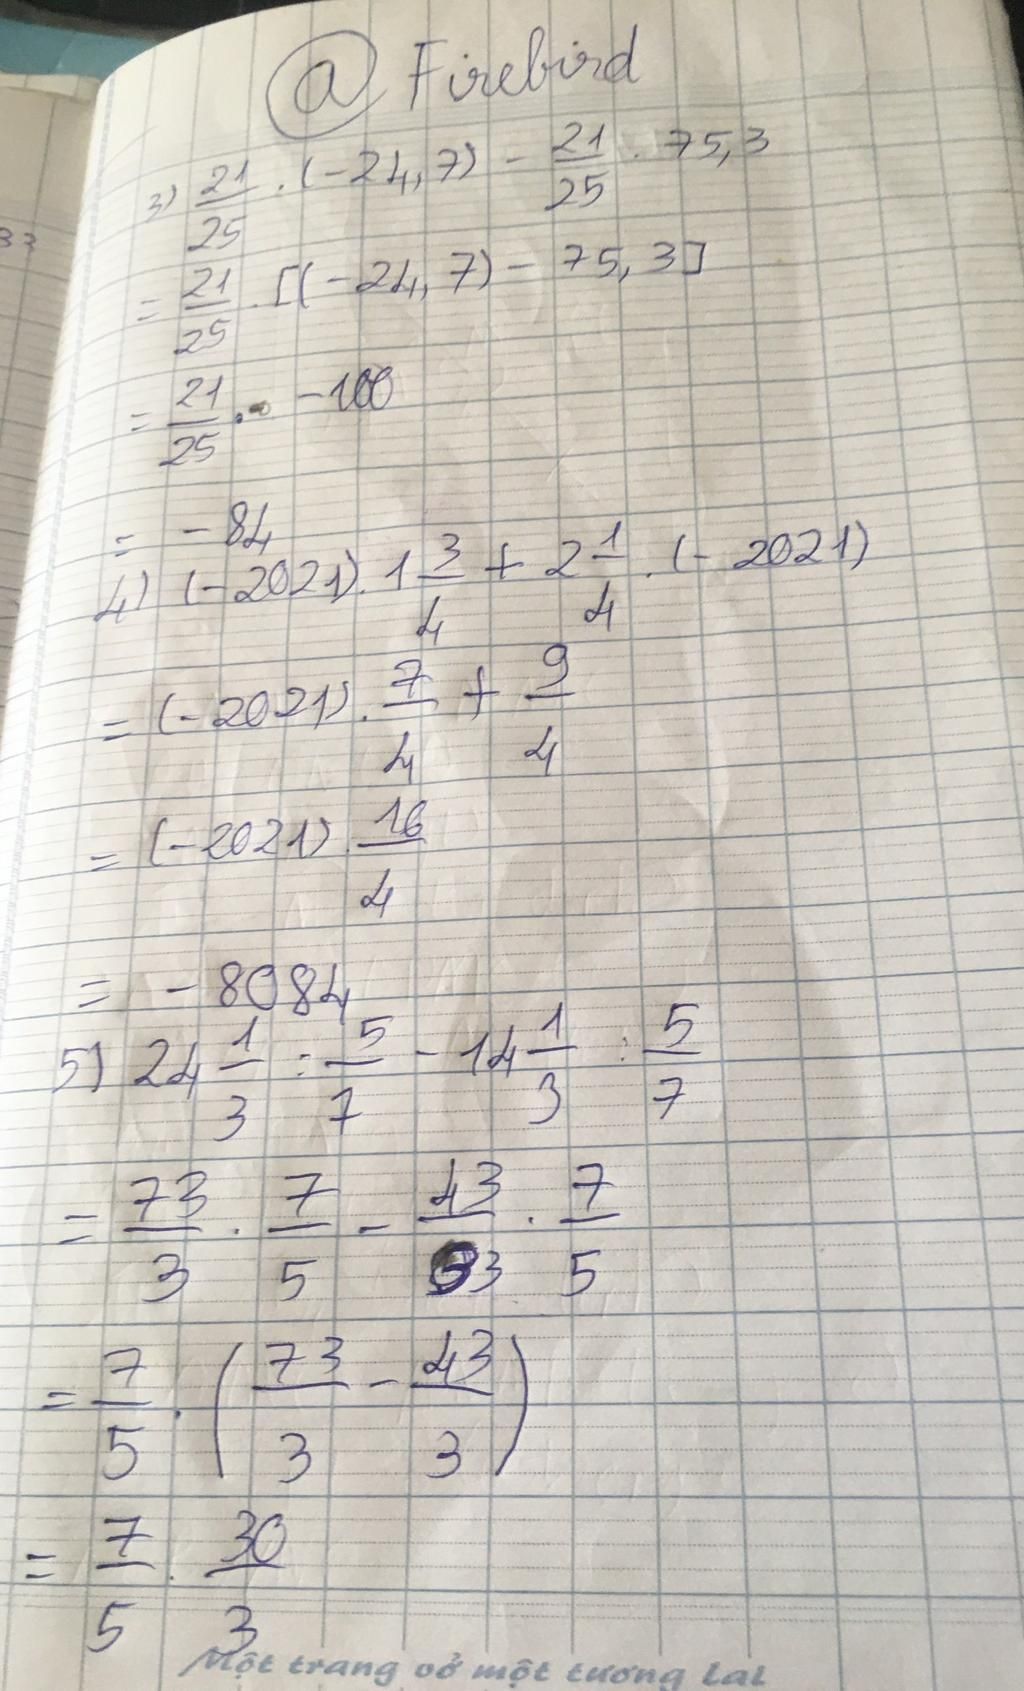 @ Firebird
3) 21/25 . (-24,7) - 21/25 . 75,3
= 21/25 . [(-24,7) - 75,3]
= 21/25 . -100
= -84
4) (-2021) . 1 3/4 + 2 1/4 . (-2021)
= (-2021) . 7/4 + 9/4
= (-2021) . 16/4
= -8084
5) 24 1/3 : 5/7 - 14 1/3 : 5/7
= 73/3 . 7/5 - 43/3 . 7/5
= 7/5 . (73/3 - 43/3)
= 7/5 . 30/3
Một trang vở một tương lai
33